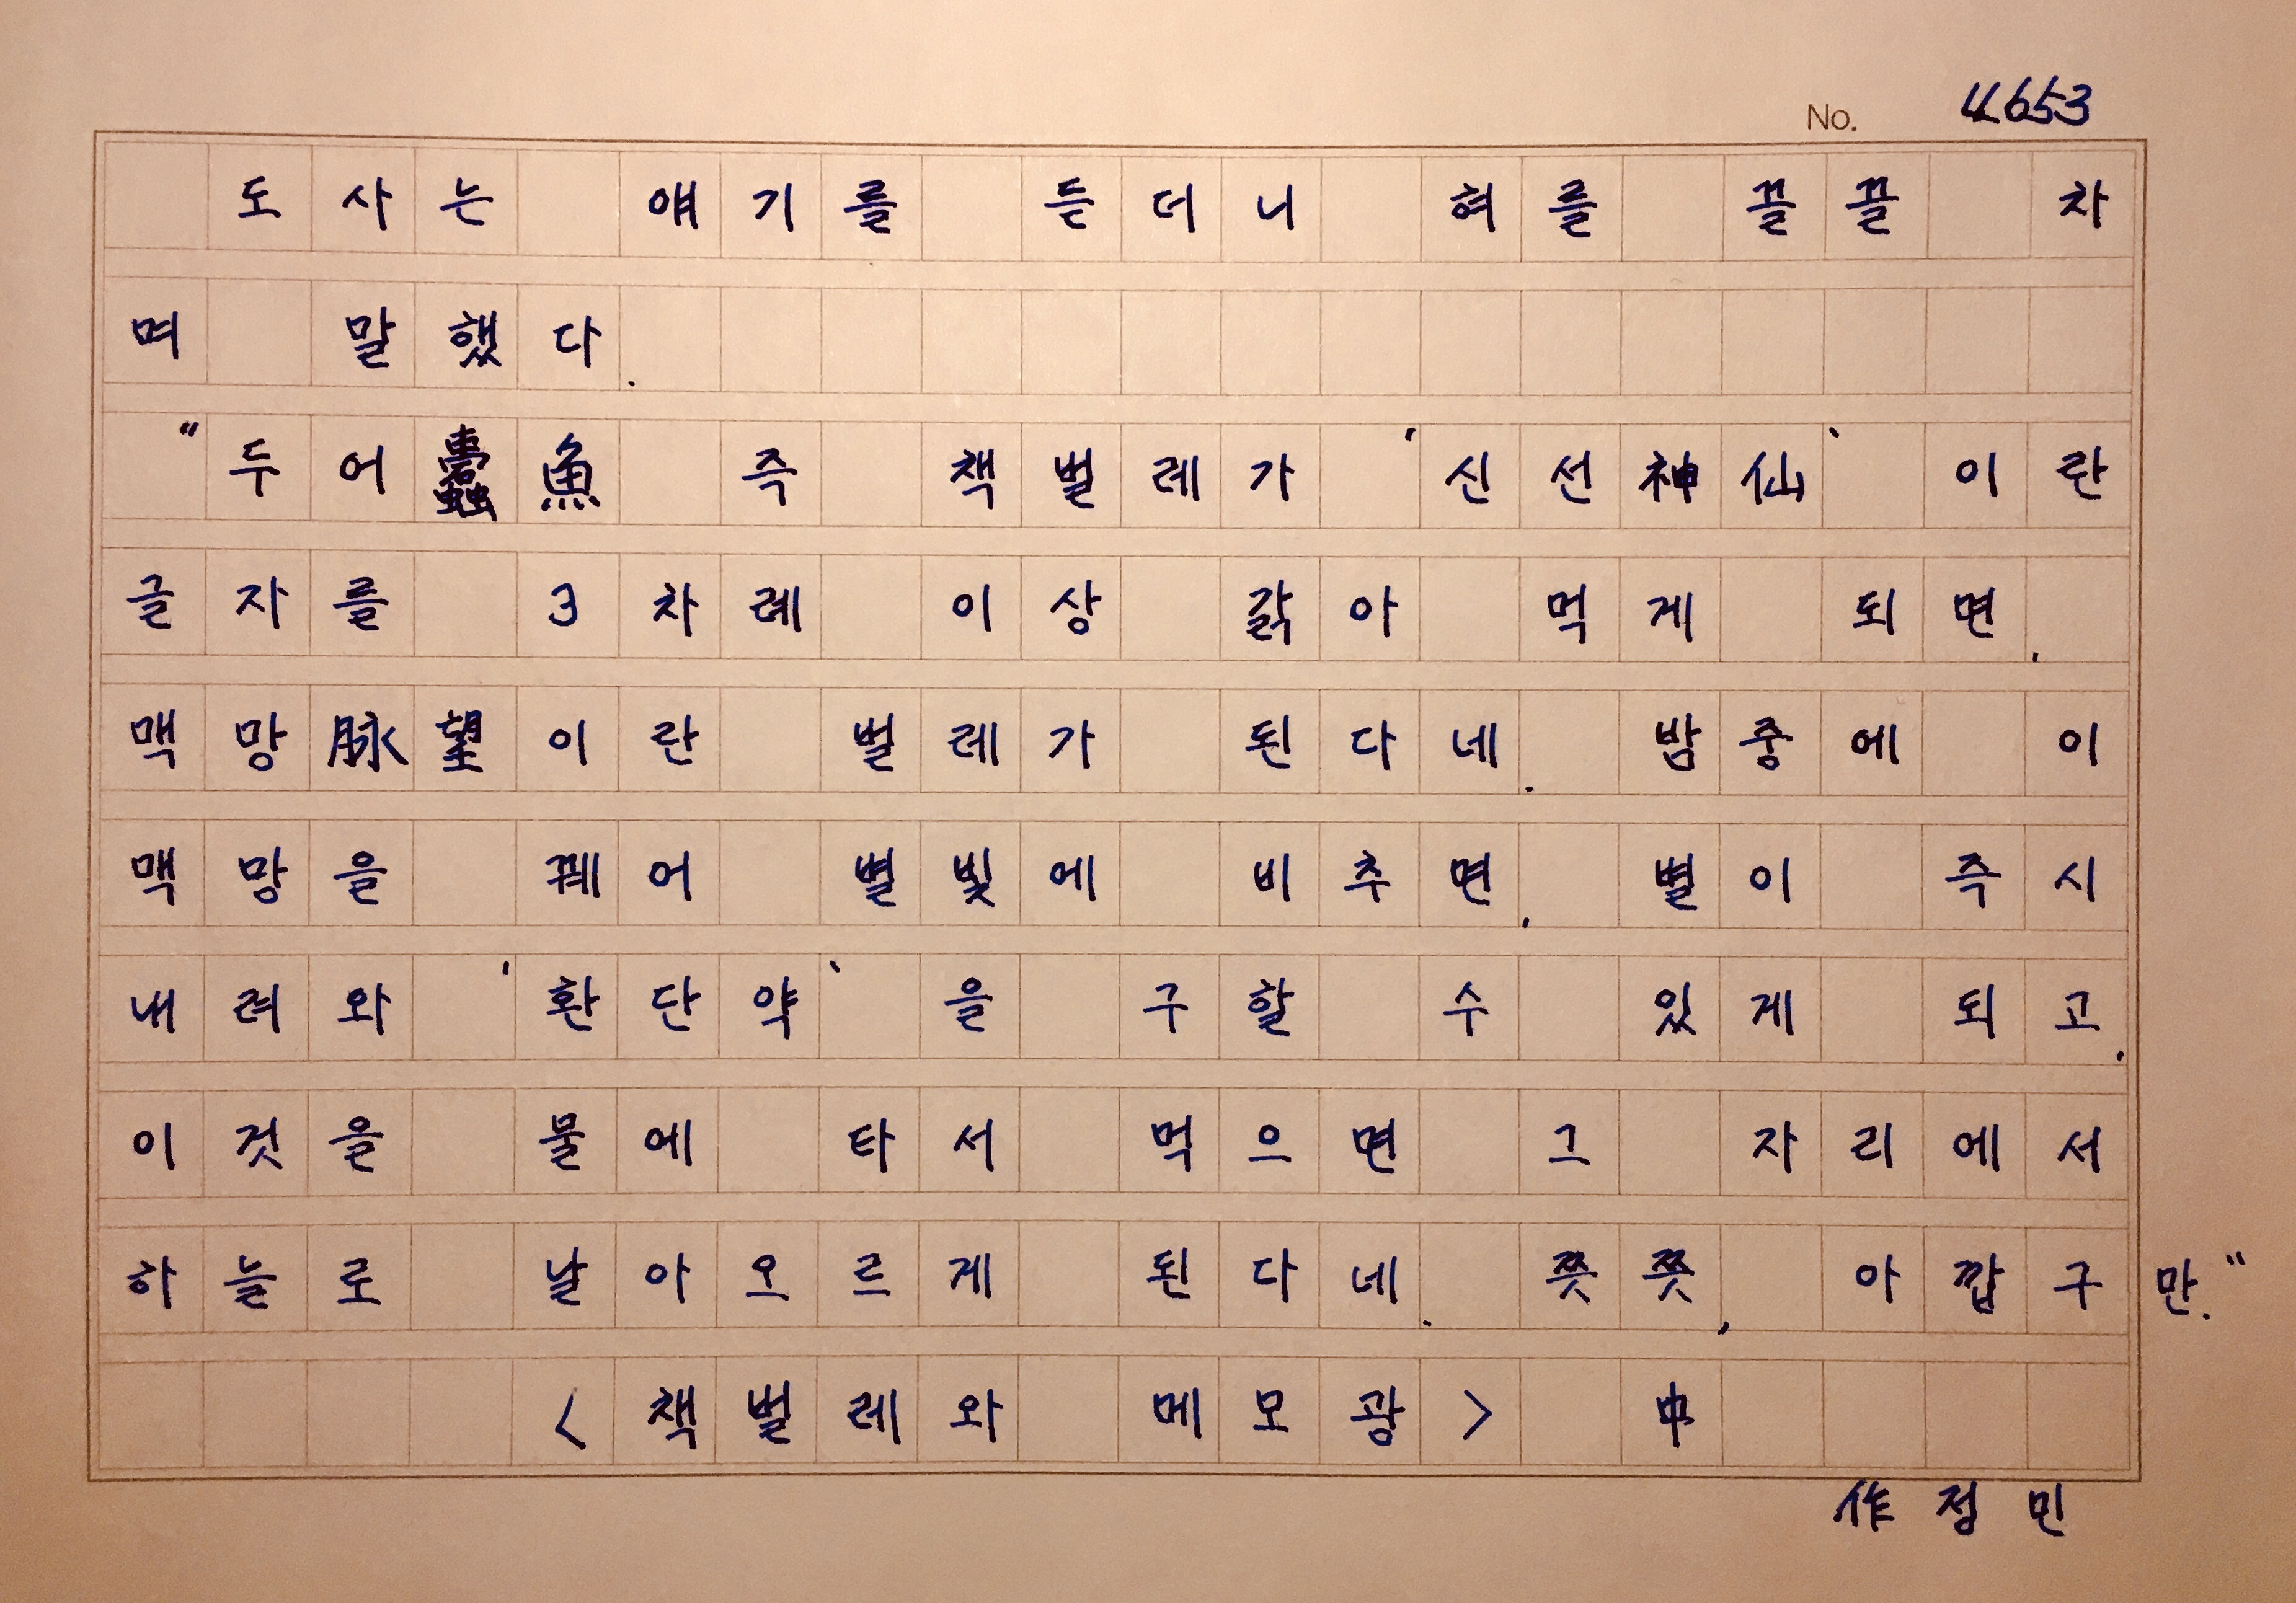 No. 4653
도사는 얘기를 듣더니 혀를 끌끌 차
며 말했다.
"두어蠹魚 즉 책벌레가 '신선神仙'이란
글자를 3차례 이상 갉아 먹게 되면,
맥망脉望이란 벌레가 된다네. 밤중에 이
맥망을 꿰어 별빛에 비추면, 별이 즉시
내려와 '환단약'을 구할 수 있게 되고,
이것을 물에 타서 먹으면 그 자리에서
하늘로 날아오르게 된다네. 쯧쯧, 아깝구만."
<책벌레와 메모광> 中
作 정민